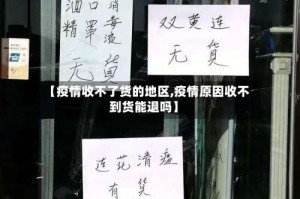 酒口消
精罩毒
液
无货
双黄连
无货
【疫情收不了货的地区,疫情原因收不
到货能退吗】
连花清瘟
有货